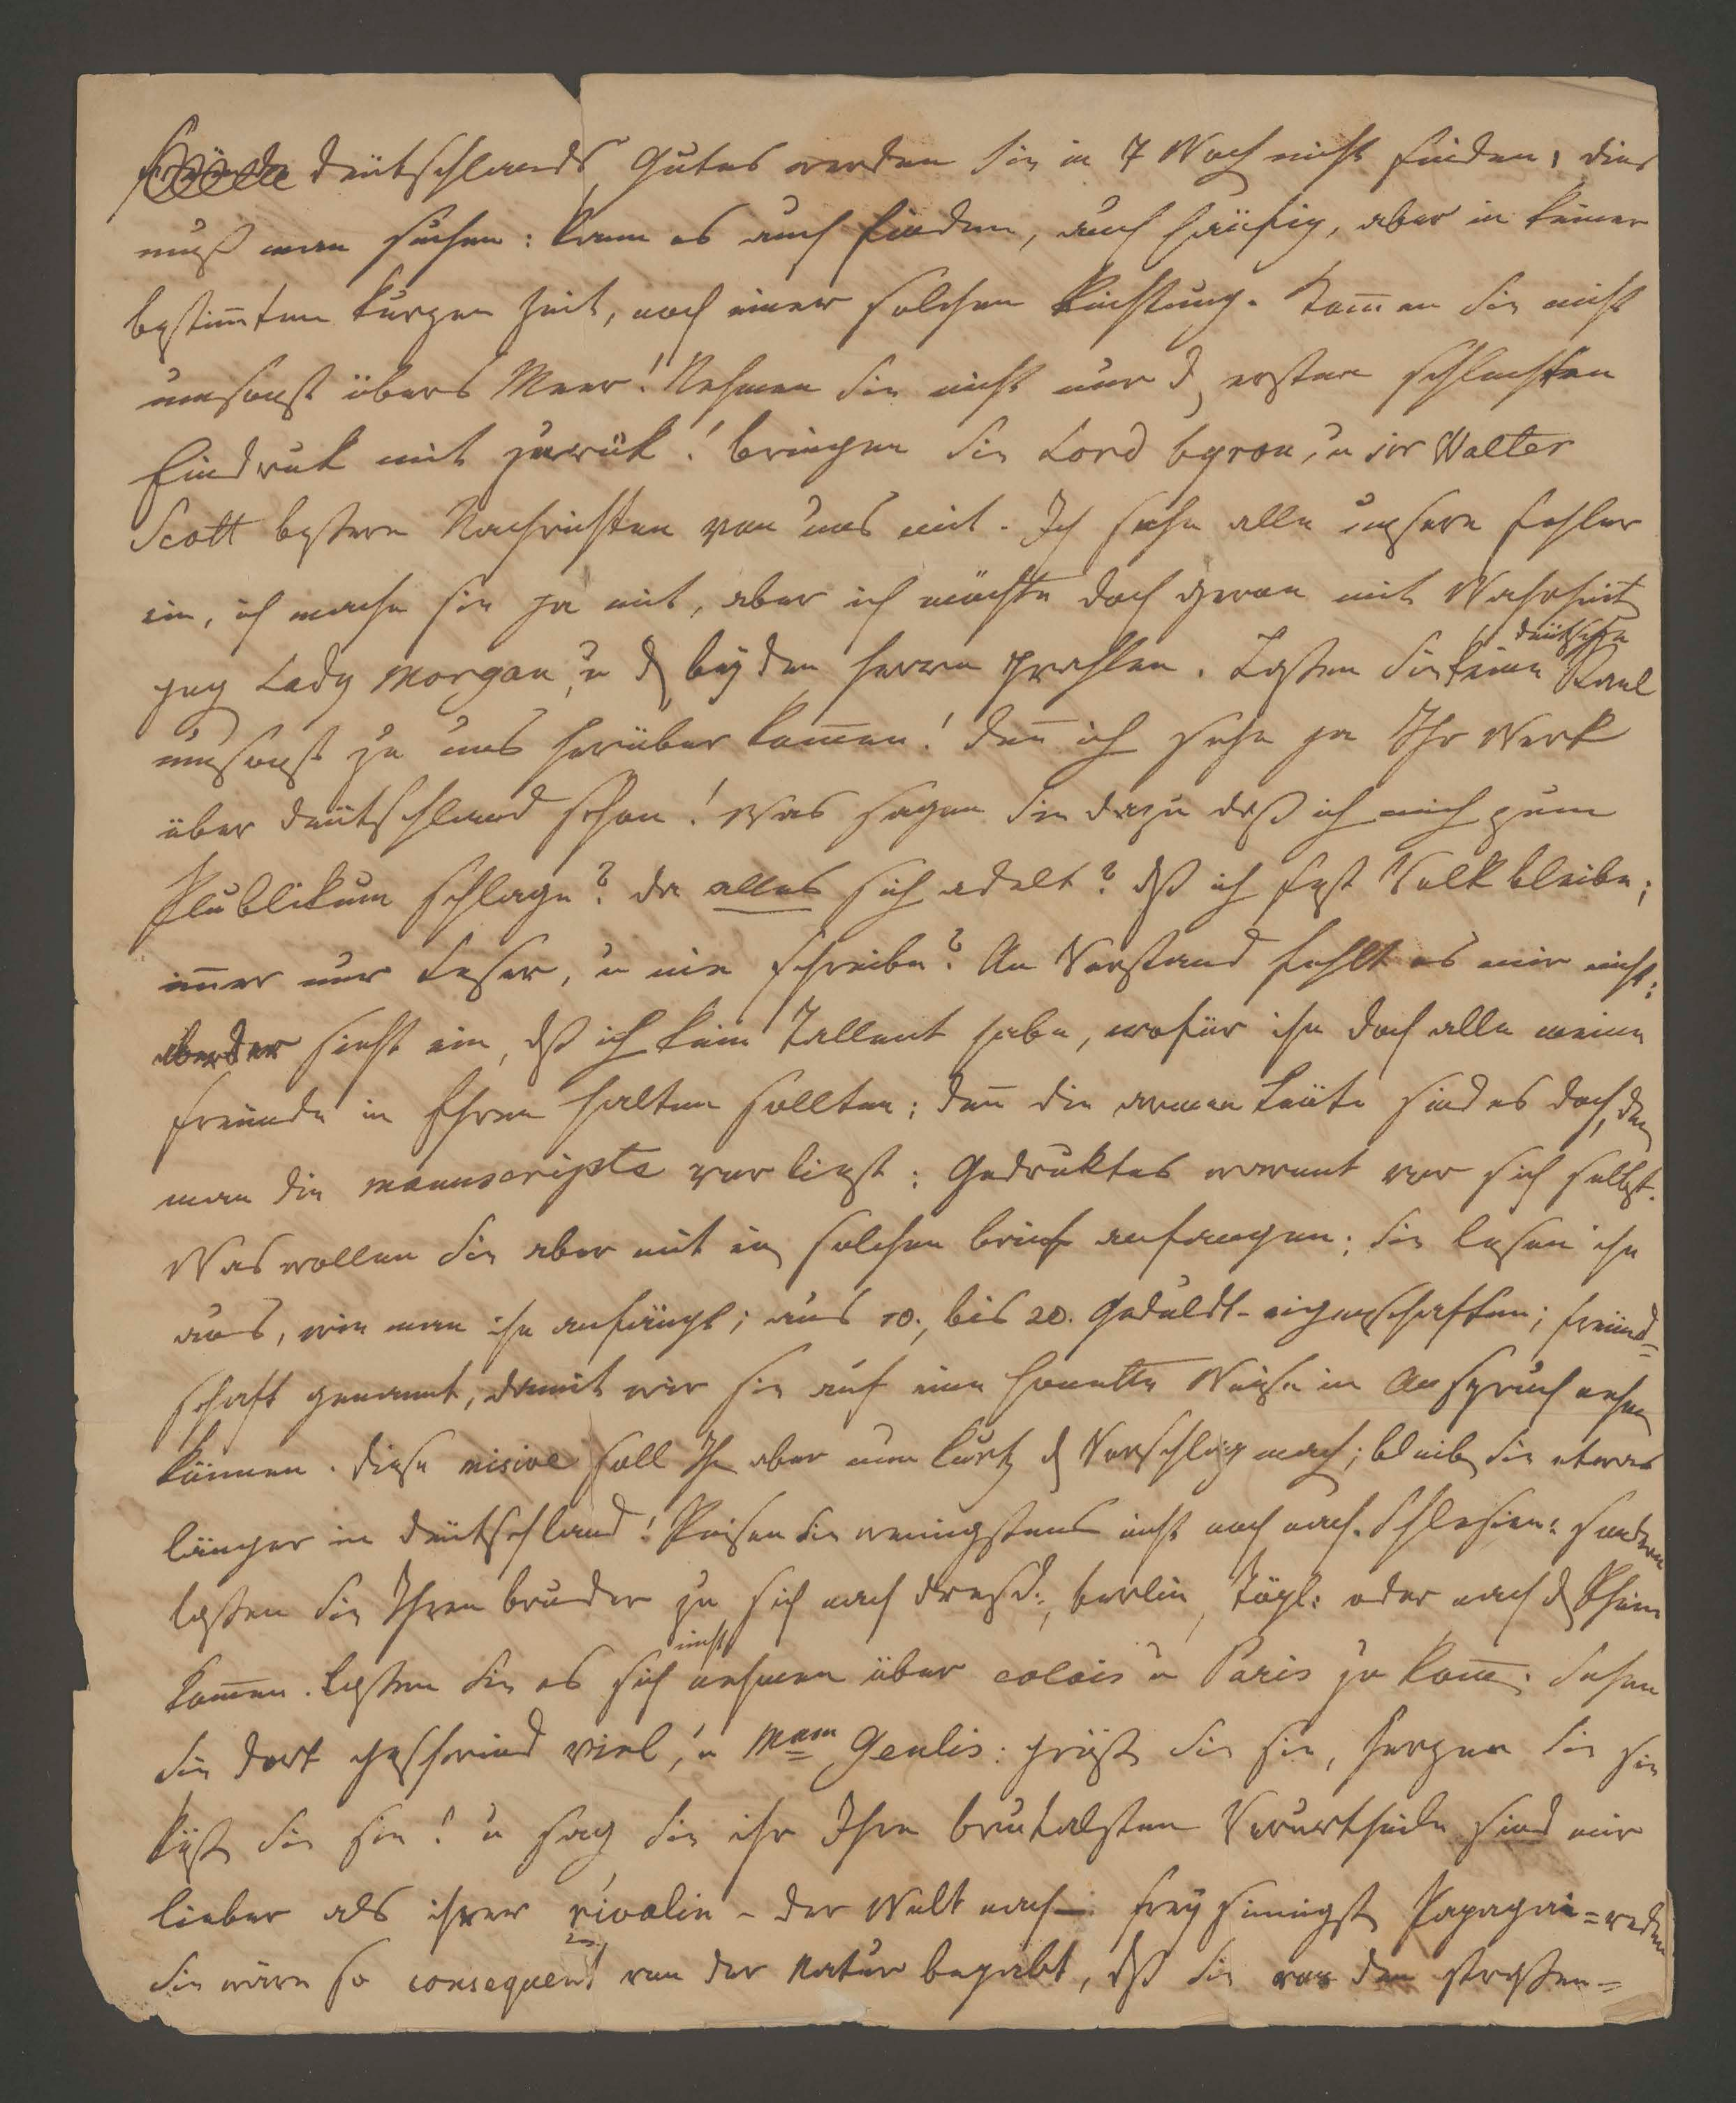 Deutschlands Gutes werden Sie in 7 Woch nicht finden; dies
muß man suchen: kann es auch finden, auch häufig, aber in keiner
bestim̄ten kurzen Zeit, nach einer solchen Richtung. Kom̄en Sie nicht
umsonst übers Meer! Nehmen Sie nicht nur d. ersten schlechten
Eindruk mit zurük! bringen Sie Lord byron, u sir Walter
Scott bessere Nachrichten von uns mit. Ich sehe alle unsere Fehler
ein, ich mache sie ja mit, aber ich möchte doch gerne mit Wahrheit
geg Lady Morgan, u d beyden Herren prahlen. Lassen Sie keine deutsche
umsonst zu uns herüber kom̄en! den̄ ich sehe ja Ihr Werk
über Deutschland schon! Was sagen Sie dazu daß ich mich zum
Publikum schlage? da alles sich adelt? dß ich fest Volk bleibe;
im̄er nur Leser, u nie schreibe? An Verstand fehlt es mir nicht:
aber der sieht ein, dß ich kein Tallent habe, wofür ihn doch alle meine
Freunde in Ehren halten sollten; den̄ die armen Leute sind es doch, den
man die manuscripte vorliest: Gedruktes warnt vor sich selbst.
Was wollen Sie aber mit ein solchen brief anfangen; Sie lesen ihn
aus, wie man ihn anfängt; aus 10., bis 20. Geduldt-eigenschaften; freund=
schaft genannt, damit wir sie auf eine honette Weise in Anspruch nehm
können. Diese misive soll Ihn aber nun kurtz d Vorschlag mach; bleib Sie etwas
länger in Deutschland! Reisen Sie wenigstens nicht noch nach Schlesien: sondern
lassen Sie Ihren bruder zu sich nach Dresd:, berlin, Töpl: oder nach d Rhein
kom̄en. Lassen Sie es sich nicht nehmen über calais u Paris zu kom̄. Sehen
Sie dort geschwind viel, u Mam Genlis: grüß Sie sie, herzen Sie sie
küß Sie sie! u sag Sie ihr Ihre brutalsten Vorurtheile sind mir
lieber als ihrer rivalin – der Welt nach: freysinnigst Papageien=reden
Sie wäre so consequent von der Natur begabt, dß Sie vor den strassen=